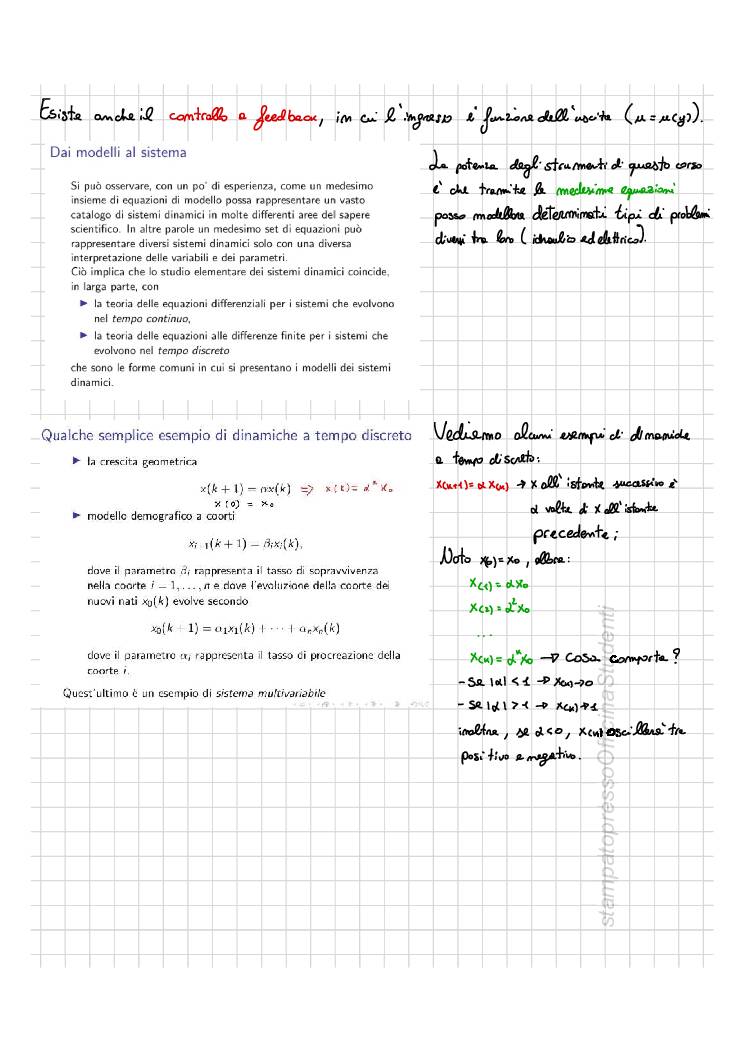 Esiste anche il controllo a feedback, in cui l'ingresso è funzione dell'uscita (u = u(y)).
Dai modelli al sistema
Si può osservare, con un po' di esperienza, come un medesimo
insieme di equazioni di modello possa rappresentare un vasto
catalogo di sistemi dinamici in molte differenti aree del sapere
scientifico. In altre parole un medesimo set di equazioni può
rappresentare diversi sistemi dinamici solo con una diversa
interpretazione delle variabili e dei parametri.
Ciò implica che lo studio elementare dei sistemi dinamici coincide,
in larga parte, con
▶ la teoria delle equazioni differenziali per i sistemi che evolvono
nel tempo continuo,
▶ la teoria delle equazioni alle differenze finite per i sistemi che
evolvono nel tempo discreto
che sono le forme comuni in cui si presentano i modelli dei sistemi
dinamici.
La potenza degli strumenti di questo corso
è che tramite le medesime equazioni
posso modellare determinati tipi di problemi
diversi tra loro (idraulico ed elettrico).
Qualche semplice esempio di dinamiche a tempo discreto
▶ la crescita geometrica
x(k + 1) = αx(k) => x(k) = α^k x₀
x(0) = x₀
▶ modello demografico a coorti
xᵢ₊₁(k + 1) = βᵢxᵢ(k),
dove il parametro βᵢ rappresenta il tasso di sopravvivenza
nella coorte i = 1, . . . , n e dove l'evoluzione della coorte dei
nuovi nati x₀(k) evolve secondo
x₀(k + 1) = α₁x₁(k) + · · · + αₙxₙ(k)
dove il parametro αᵢ rappresenta il tasso di procreazione della
coorte i.
Quest'ultimo è un esempio di sistema multivariabile
Vediamo alcuni esempi di dinamiche
a tempo discreto:
x(k+1) = α x(k) → x all'istante successivo è
α volte di x all'istante
precedente;
Noto x(0) = x₀, allora:
x(1) = αx₀
x(2) = α²x₀
...
x(k) = α^k x₀ → Cosa comporta?
- Se |α| < 1 → x(k) → 0
- Se |α| > 1 → x(k) → 1
inoltre, se α < 0, x(k) oscillerà tra
positivo e negativo.
stampatopressoOfficinaStudenti